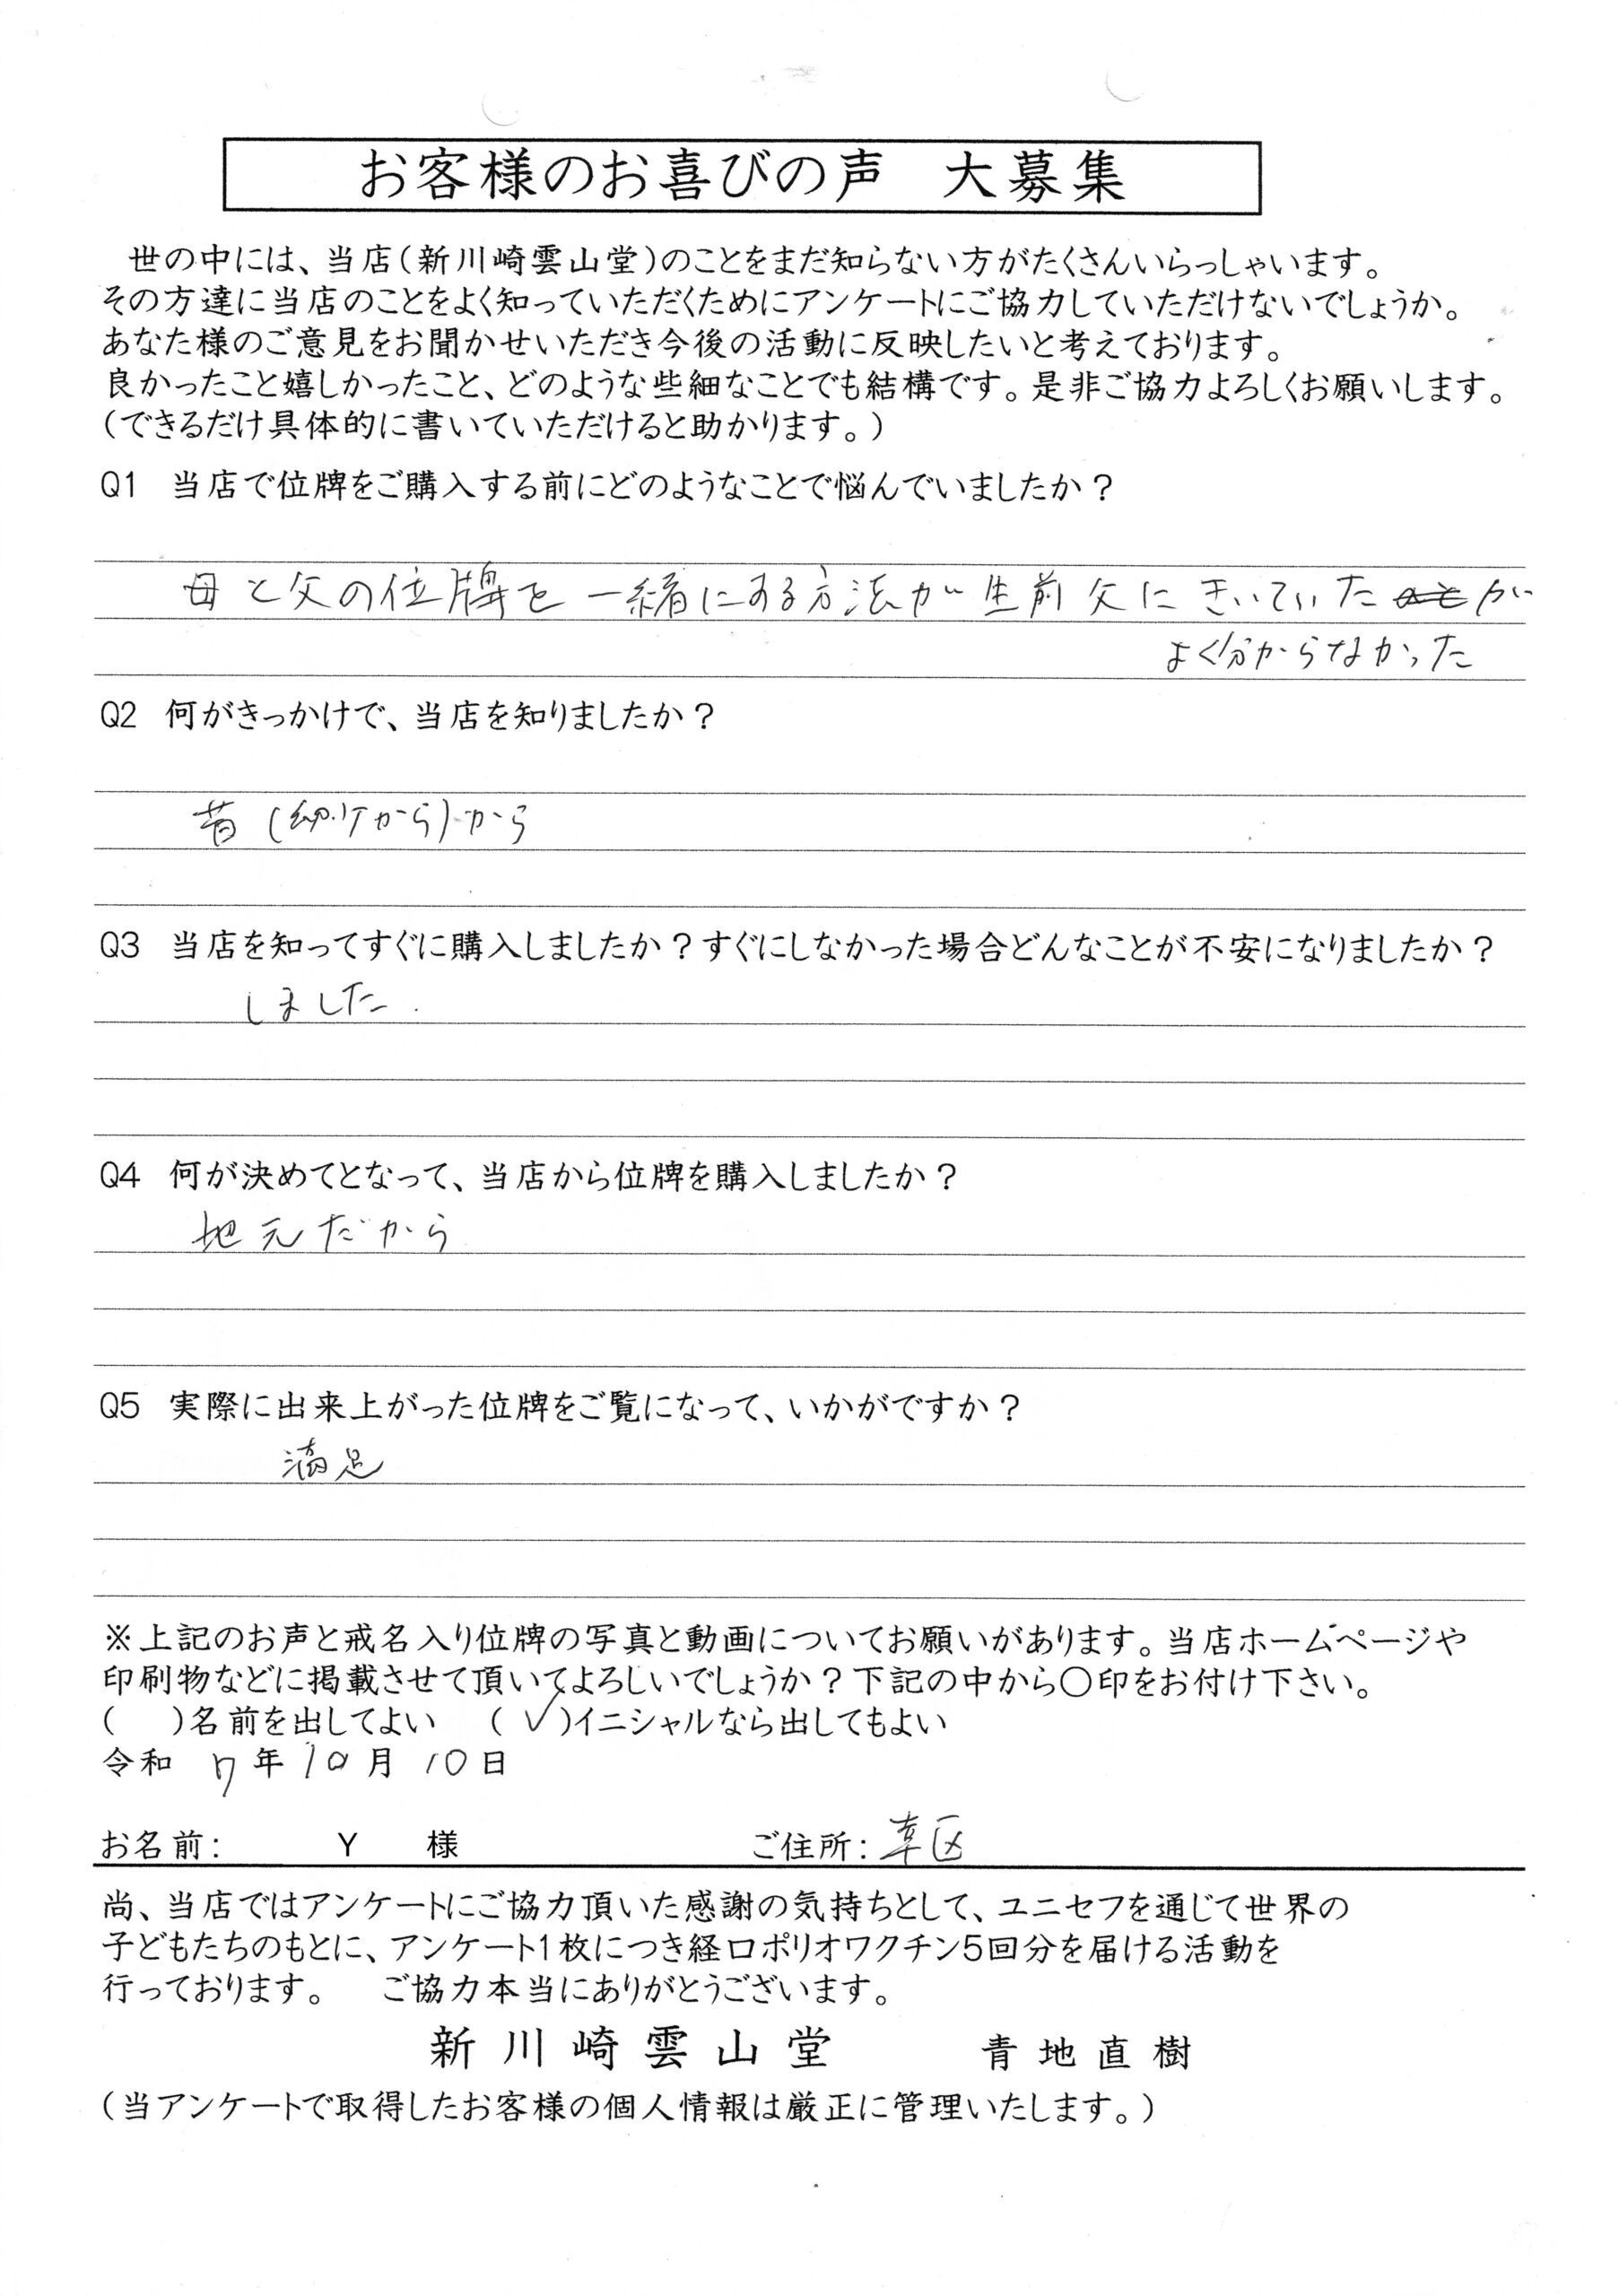 お客様のお喜びの声　大募集
世の中には、当店（新川崎雲山堂）のことをまだ知らない方がたくさんいらっしゃいます。
その方達に当店のことをよく知っていただくためにアンケートにご協力していただけないでしょうか。
あなた様のご意見をお聞かせいただき今後の活動に反映したいと考えております。
良かったこと嬉しかったこと、どのような些細なことでも結構です。是非ご協力よろしくお願いします。
（できるだけ具体的に書いていただけると助かります。）
Q1　当店で位牌をご購入する前にどのようなことで悩んでいましたか？
母と父の位牌を一緒にする方法が生前父にきいていたが
よく分からなかった
Q2　何がきっかけで、当店を知りましたか？
昔（から）から
Q3　当店を知ってすぐに購入しましたか？すぐにしなかった場合どんなことが不安になりましたか？
しました.
Q4　何が決めてとなって、当店から位牌を購入しましたか？
地元だから
Q5　実際に出来上がった位牌をご覧になって、いかがですか？
満足
※上記のお声と戒名入り位牌の写真と動画についてお願いがあります。当店ホームページや
印刷物などに掲載させて頂いてよろしいでしょうか？下記の中から〇印をお付け下さい。
（　）名前を出してよい　（✓）イニシャルなら出してもよい
令和 7年10月10日
お名前：　Y　様　ご住所：幸区
尚、当店ではアンケートにご協力頂いた感謝の気持ちとして、ユニセフを通じて世界の
子どもたちのもとに、アンケート1枚につき経口ポリオワクチン5回分を届ける活動を
行っております。　ご協力本当にありがとうございます。
新川崎雲山堂　青地直樹
（当アンケートで取得したお客様の個人情報は厳正に管理いたします。）